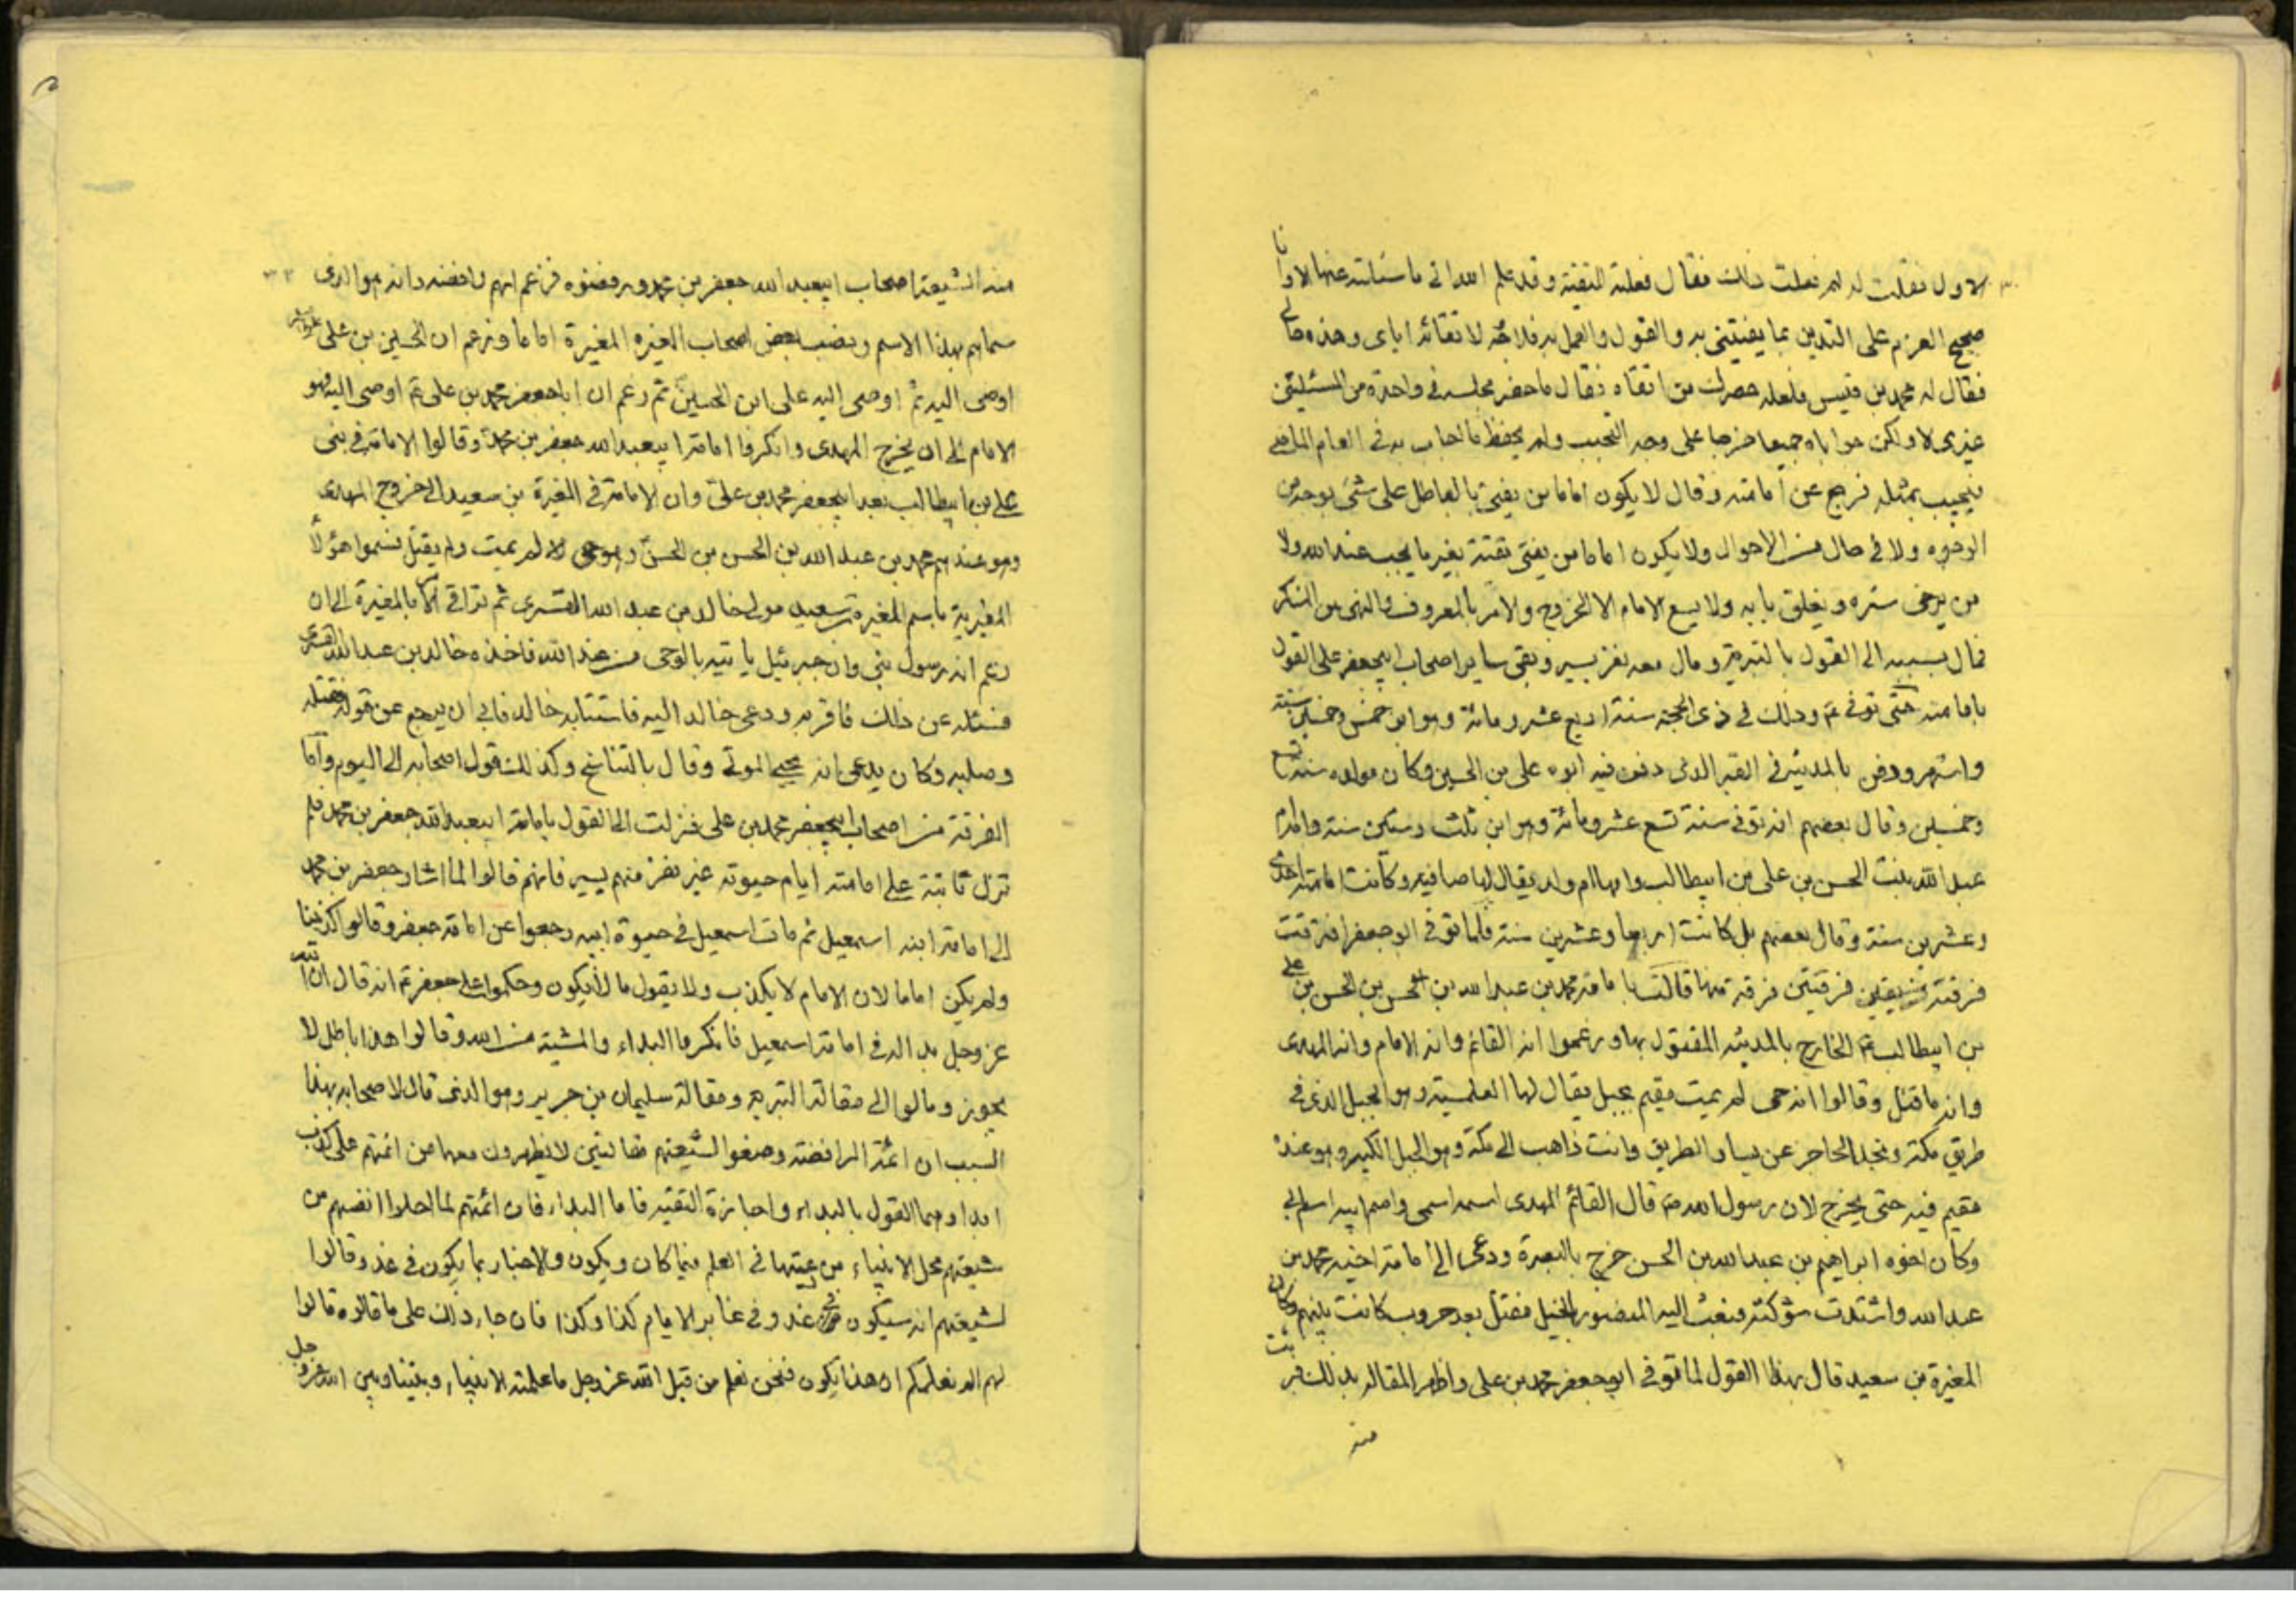 الاول فقلت له لم فعلت ذلك فقال فعلته للتقية وقد علم الله انى ما سئلته عنها الا وانا
صحيح العزم على التدين بما يفتينى به والقول والعمل به فلا وجه لاتقائه اياى وهذه حالى
فقال له محمد بن قيس فلعله حضرك من اتقاه فقال ما حضر مجلسه فى واحدة من المسئلتين
غيرى لا ولكن جواباه جميعا خرجا على وجه التجيب ولم يحفظ ما اجاب به فى العام الماضى
فيجيب بمثله فرجع عن امامته وقال لا يكون اماما من يفتى بالباطل على شئ بوجه من
الوجوه ولا فى حال من الاحوال ولا يكون اماما من يفتى تقية بغير ما يجب عند الله ولا
من يرخى ستره ويغلق بابه ولا يسع الامام الا الخروج والامر بالمعروف والنهى عن المنكر
فمال بسببه الى القول بالبترية ومال معه نفر يسير وبقى ساير اصحاب ابيجعفر على القول
بامامته حتى توفى ع وذلك فى ذى الحجة سنة اربع عشر ومائة وهو ابن خمس وخمسين سنة
واشهر ودفن بالمدينة فى القبر الذى دفن فيه ابوه على بن الحسين وكان مولده سنة تسع
وخمسين وقال بعضهم انه توفى سنة تسع عشر ومائة وهو ابن ثلث وستين سنة وامه ام
عبد الله بنت الحسن بن على بن ابيطالب وامها ام ولد يقال لها صافيه وكانت امامته احدى
وعشرين سنة وقال بعضهم بل كانت اربعا وعشرين سنة فلما توفى ابو جعفر افترقت
فرقته فرقتين فرقة منها قالت بامامة محمد بن عبد الله بن الحسن بن الحسن بن على
بن ابيطالب ع الخارج بالمدينه المقتول بها وزعموا انه القائم وانه الامام وانه المهدى
وانه ما قتل وقالوا انه حى لم يمت مقيم بجبل يقال لها العلمية وهو الجبل الذى فى
طريق مكة ونجد الحاجز عن يسار الطريق وانت ذاهب الى مكة وهو الجبل الكبير وهو عنده
مقيم فيه حتى يخرج لان رسول الله ص قال القائم المهدى اسمه اسمى واسم ابيه اسم ابى
وكان اخوه ابراهيم بن عبد الله بن الحسن خرج بالبصرة ودعى الى امامة اخيه محمد بن
عبد الله واشتدت شوكته فبعث اليه المنصور بالخيل فقتل بعد حروب كانت بينهم وكان
المغيرة بن سعيد قال بهذا القول لما توفى ابو جعفر محمد بن على واظهر المقالة بذلك فبرئت
منه
منه الشيعة اصحاب ابيعبد الله جعفر بن محمد ورفضوه فزعم انهم رافضه وانه هو الذى
سماهم بهذا الاسم ونصب بعض اصحاب المغيره المغيرة اماما وزعم ان الحسين بن على
اوصى اليه ثم اوصى اليه على ابن الحسين ثم زعم ان ابا جعفر محمد بن على ع اوصى اليه فهو
الامام الى ان يخرج المهدى وانكروا امامة ابيعبد الله جعفر بن محمد وقالوا لا امامة فى بنى
على بن ابيطالب بعد ابيجعفر محمد بن على وان الامامة فى المغيرة بن سعيد الى خروج المهدى
وهو عندهم محمد بن عبد الله بن الحسن بن الحسن وهو حى لم يمت ولم يقتل فسموا هؤلاء
المغيرية باسم المغيرة بن سعيد مولى خالد بن عبد الله القسرى ثم تراقى الامر بالمغيرة الى ان
زعم انه رسول نبى وان جبرئيل ياتيه بالوحى من عند الله فاخذه خالد بن عبد الله القسرى
فسئله عن ذلك فاقر به ودعى خالد اليه فاستتابه خالد فابى ان يرجع عن قوله فقتله
وصلبه وكان يدعى انه يحيى الموتى وقال بالتناسخ وكذلك قول اصحابه الى اليوم واما
الفرقة من اصحاب ابيجعفر محمد بن على فنزلت الى القول بامامة ابيعبد الله جعفر بن محمد فلم
تزل ثابتة على امامته ايام حيوته غير نفر منهم يسير فانهم قالوا لما اشار جعفر بن محمد
الى امامة ابنه اسمعيل ثم مات اسمعيل فى حيوة ابيه رجعوا عن امامة جعفر وقالوا كذبنا
ولم يكن اماما لان الامام لا يكذب ولا يقول ما لا يكون وحكموا على جعفر ع انه قال ان الله
عز وجل بدا له فى امامة اسمعيل فانكروا البداء والمشية من الله وقالوا هذا باطل لا
يجوز ومالوا الى مقالة البترية ومقالة سليمان بن جرير وهو الذى قال لاصحابه بهذا
السبب ان ائمة الرافضة وضعوا لشيعتهم مقالتين لا يظهرون معهما من ائمتهم على كذب
ابدا وهما القول بالبداء واجازة التقيه فاما البداء فان ائمتهم لما احلوا انفسهم من
شيعتهم محل الانبياء من رعيتها فى العلم فيما كان ويكون والاخبار بما يكون فى غد وقالوا
لشيعتهم انه سيكون فى غد وفى غابر الايام كذا وكذا فان جاء ذلك على ما قالوه قالوا
لهم الم نعلمكم ان هذا يكون فنحن نعلم من قبل الله عز وجل ما علمته الانبياء وبيننا وبين الله عز وجل